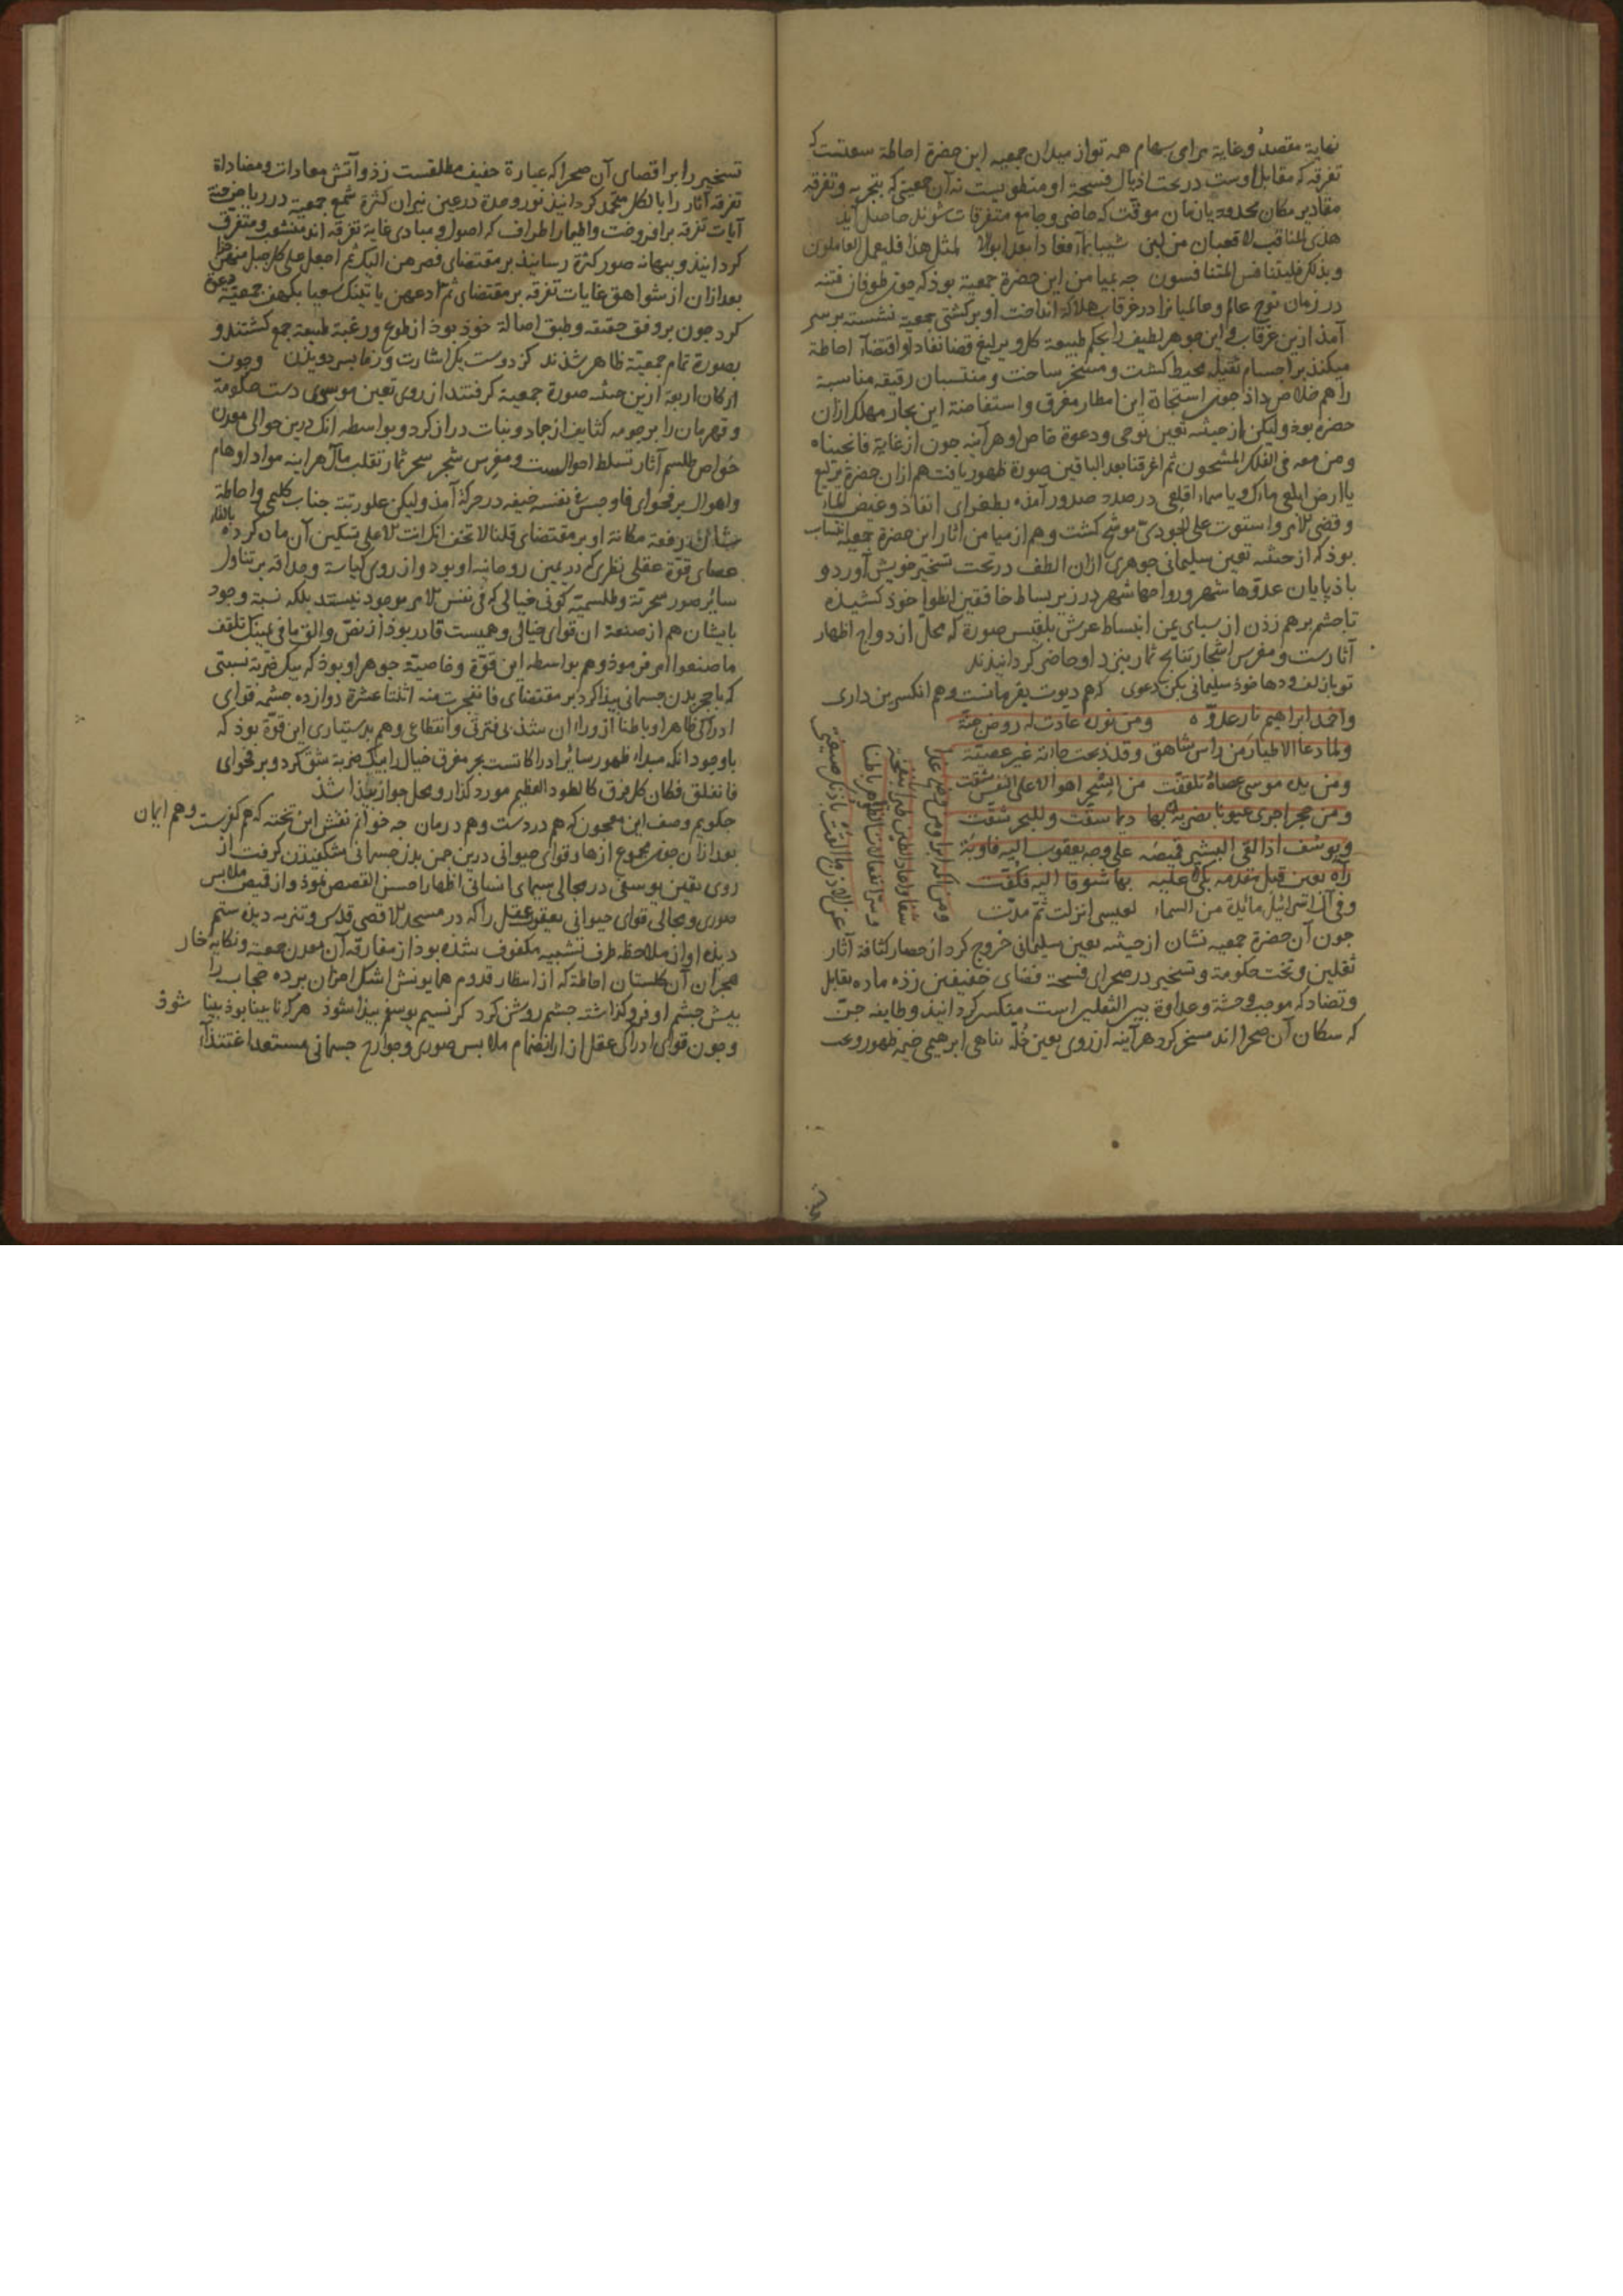 نهایة مقصد و غایة مرامی سهام همه تواز میدان جمعیه این حضرة احاطة سعتست که
تفرقه که مقابل اوست در تحت اذیال فسحة او منطوی نیست نه آن جمعیتی که بتجربه و تفرقه
مقادیر مکان محدود یا زمان موقت که حاضر و جامع متفرقات شوند حاصل آید
هذی المناقب لا قعبان من لبن شیبا بماء فعادا بعد ابوالا لمثل هذا فلیعمل العاملون
و بذلک فلیتنافس المتنافسون چه بمیامن این حضرة جمعیة بوذ که چون طوفان فتنه
در زمان نوح عالم و عالمیانرا در غرقاب هلاک انداخت او بر کشتی جمعیة نشسته بر سر
آمذ ازین غرقاب و این جوهر لطیف را بحکم طبیعة کلی و یرلیغ قضا نفاذ او اقتضاء احاطة
میکند بر اجسام ثقیله محیط کشت و مسخر ساخت و منتسبان رقیقه مناسبة
را هم خلاص داذ چون استنجاة این امطار مغرق و استفاضة این بحار مهلک ازان
حضرة بوذ ولیکن از حیثیه تعین نوحی و دعوة خاص او هرآینه چون از غایة فانجیناه
و من معه فی الفلک المشحون ثم اغرقنا بعد الباقین صورة ظهور یافت هم ازان حضرة یرلیغ
یا ارض ابلعی ماءک و یا سماء اقلعی در صدد صدور آمذه بطغرای انفاذ و غیض الماء
و قضی الامر و استوت علی الجودی موشح کشت و هم از میامن اثار این حضرة جمعیة انتساب
بوذ که از حیثیه تعین سلیمانی جوهری ازان الطف در تحت تسخیر خویش آورد و
باذ پایان غدوها شهر و رواحها شهر در زیر بساط خافقین انطوا خوذ کشیذه
تا چشم برهم زذن از سبای یمن انبساط عرش بلقیس صورة که محل ازدواج اظهار
آثارست و مغرس اشجار نتایج ثمار بنزد او حاضر کردانیذند
تو باز لف و دها خوذ سلیمانی بکن دعوی که هم دیوت بفرمانست و هم انکسترین داری
و اخمد ابراهیم نار عدوه و من نوره عادت له روض جنة
و لما دعا الاطیار من رأس شاهق و قد ذبحت جاءته غیر عصیة
و من یده موسی عصاه تلقفت من السحر اهوالا علی النفس شقت
و من حجر اجری عیونا بضربة بها دیما سقت و للبحر شقت
و یوسف اذ القی البشیر قمیصه علی وجه یعقوب الیه باوبة
رآه بعین قبل مقدمه بکی علیه بها شوقا الیه فکفت
و فی آل اسرائیل مائدة من السماء لعیسی انزلت ثم مدت
و من اکمه ابرا و من وضح عدا
شفا و اعاد الطین طیرا بنفخة
و سر انفعالات الظواهر باطنا
عن الاذن ما القت باذنک صیغتی
چون آن حضرة جمعیه نشان از حیثیه تعین سلیمانی خروج کرد از حصار کثافة آثار
ثقلین و تخت حکومة و تسخیر در صحرای فسحة فضای خفیفین زذه ماده تقابل
و تضاد که موجب وحشة و عداوة بین الثقلین است منکسر کردانیذ و طایفه جن
که سکان آن صحرا اند مسخر کرد هرآینه از روی تعین خلة پناهی ابرهیمی خیمه ظهور و عب
تسخیر را بر اقصای آن صحرا که عبارة خفیف مطلقست زذ و آتش معادات و مضاداة
تفرقه آثار را بالکل منخمد کردانیذ نور وحدة در عین نیران کثرة شمع جمعیة در ریاض جنة
آیات تفرقه برافروخت و اطیار اطراف که اصول و مبادی غایة تفرقه اند متشعب و متفرق
کردانیذ و بنهایة صور کثرة رسانیذ بر مقتضای فصرهن الیک ثم اجعل علی کل جبل منهن جزءا
بعد ازان از شواهق غایات تفرقه بر مقتضای ثم ادعهن یاتینک سعیا بکهف جمعیة دعوة
کرد چون بر وفق حقیقه و طبق اصالة خوذ بوذ از طوع و رغبة طبیعة جمع کشتند و
بصورة تمام جمعیة ظاهر شذند کز دوست یک اشارت و ز ما بسر دویذن و چون
ارکان اربعة ازین حیثیه صورة جمعیة کرفتند از روی تعین موسوی دست حکومة
و قهرمان را بر حومه کثایف از جاد و نبات دراز کرد و بواسطه انک درین حوالی معدن
خواص طلسم آثار تسلط احوالست و مغرس شجر سحر ثمار تقلب مآل هرآینه مواد اوهام
و اهوال بر فحوای فاوجس فی نفسه خیفه در حرکة آمذ ولیکن علو رتبة جناب کلیمی و احاطة
شان رفعة مکانة او بر مقتضای قلنا لا تخف انک انت الاعلی تسکین آن مادّ کرده بالقاء
عصای قوة عقلی نظری که در یمین روحانیه او بوذ و از روی کیاسة و حذاقه بر تناول
سائر صور سحریه و طلسمیة کونی خیالی که فی نفس الامر موجود نیستند بلکه نسبة وجود
بایشان هم از صنعة ان قوای خیالی و همیست قادر بوذ از نص و الق ما فی یمینک تلقف
ما صنعوا امر فرموذ و هم بواسطه این قوة و خاصیة جوهر او بوذ که بیک ضربة نسبتی
که با حجر بدن جسمانی پیدا کرد بر مقتضای فانفجرت منه اثنتا عشرة دوازده چشمه قوای
ادراکی ظاهرا و باطنا ازو روان شذ بی فترتی و انقطاع و هم بدستیاری این قوة بوذ که
باوجود انکه مبداء ظهور سائر ادراکاتست بحر مفرق خیال را بیک ضربة شق کرد و بر فحوای
فانفلق فکان کل فرق کالطود العظیم مورد کذار و محل جواز پیدا شذ
چکویم وصف این معجون که هم دردست و هم درمان چه خوانم نقش این تخته که هم کفرست و هم ایمان
بعد ازان چون مجموع ازهار قوای حیوانی درین چمن بدن جسمانی شکفیذن کرفت از
روی تعین یوسفی در مجالی سیمای انسانی اظهار احسن القصص نموذ و از قمیص ملابس
صوری و مجالی قوای حیوانی یعقوب عقل را که در مسجد الاقصی قدس و تنزیه دیذن ستم
دیده او از ملاحظه طرف تشبیه مکفوف شذه بوذ از مفارقه آن معدن جمعیة و نکایة خار
هجران آن کلستان احاطة که از اسطار قدوم همایونش اشک احزان برده حجاب را
پیش چشم او فروکذاشته چشم روشن کرد کز نسیم یوسفم پیدا شوذ هر که نابینا بوذ بینا شوذ
و چون قوای ادراکی عقل از انضمام ملابس صوری و جوارح جسمانی مستعد اغتذآء